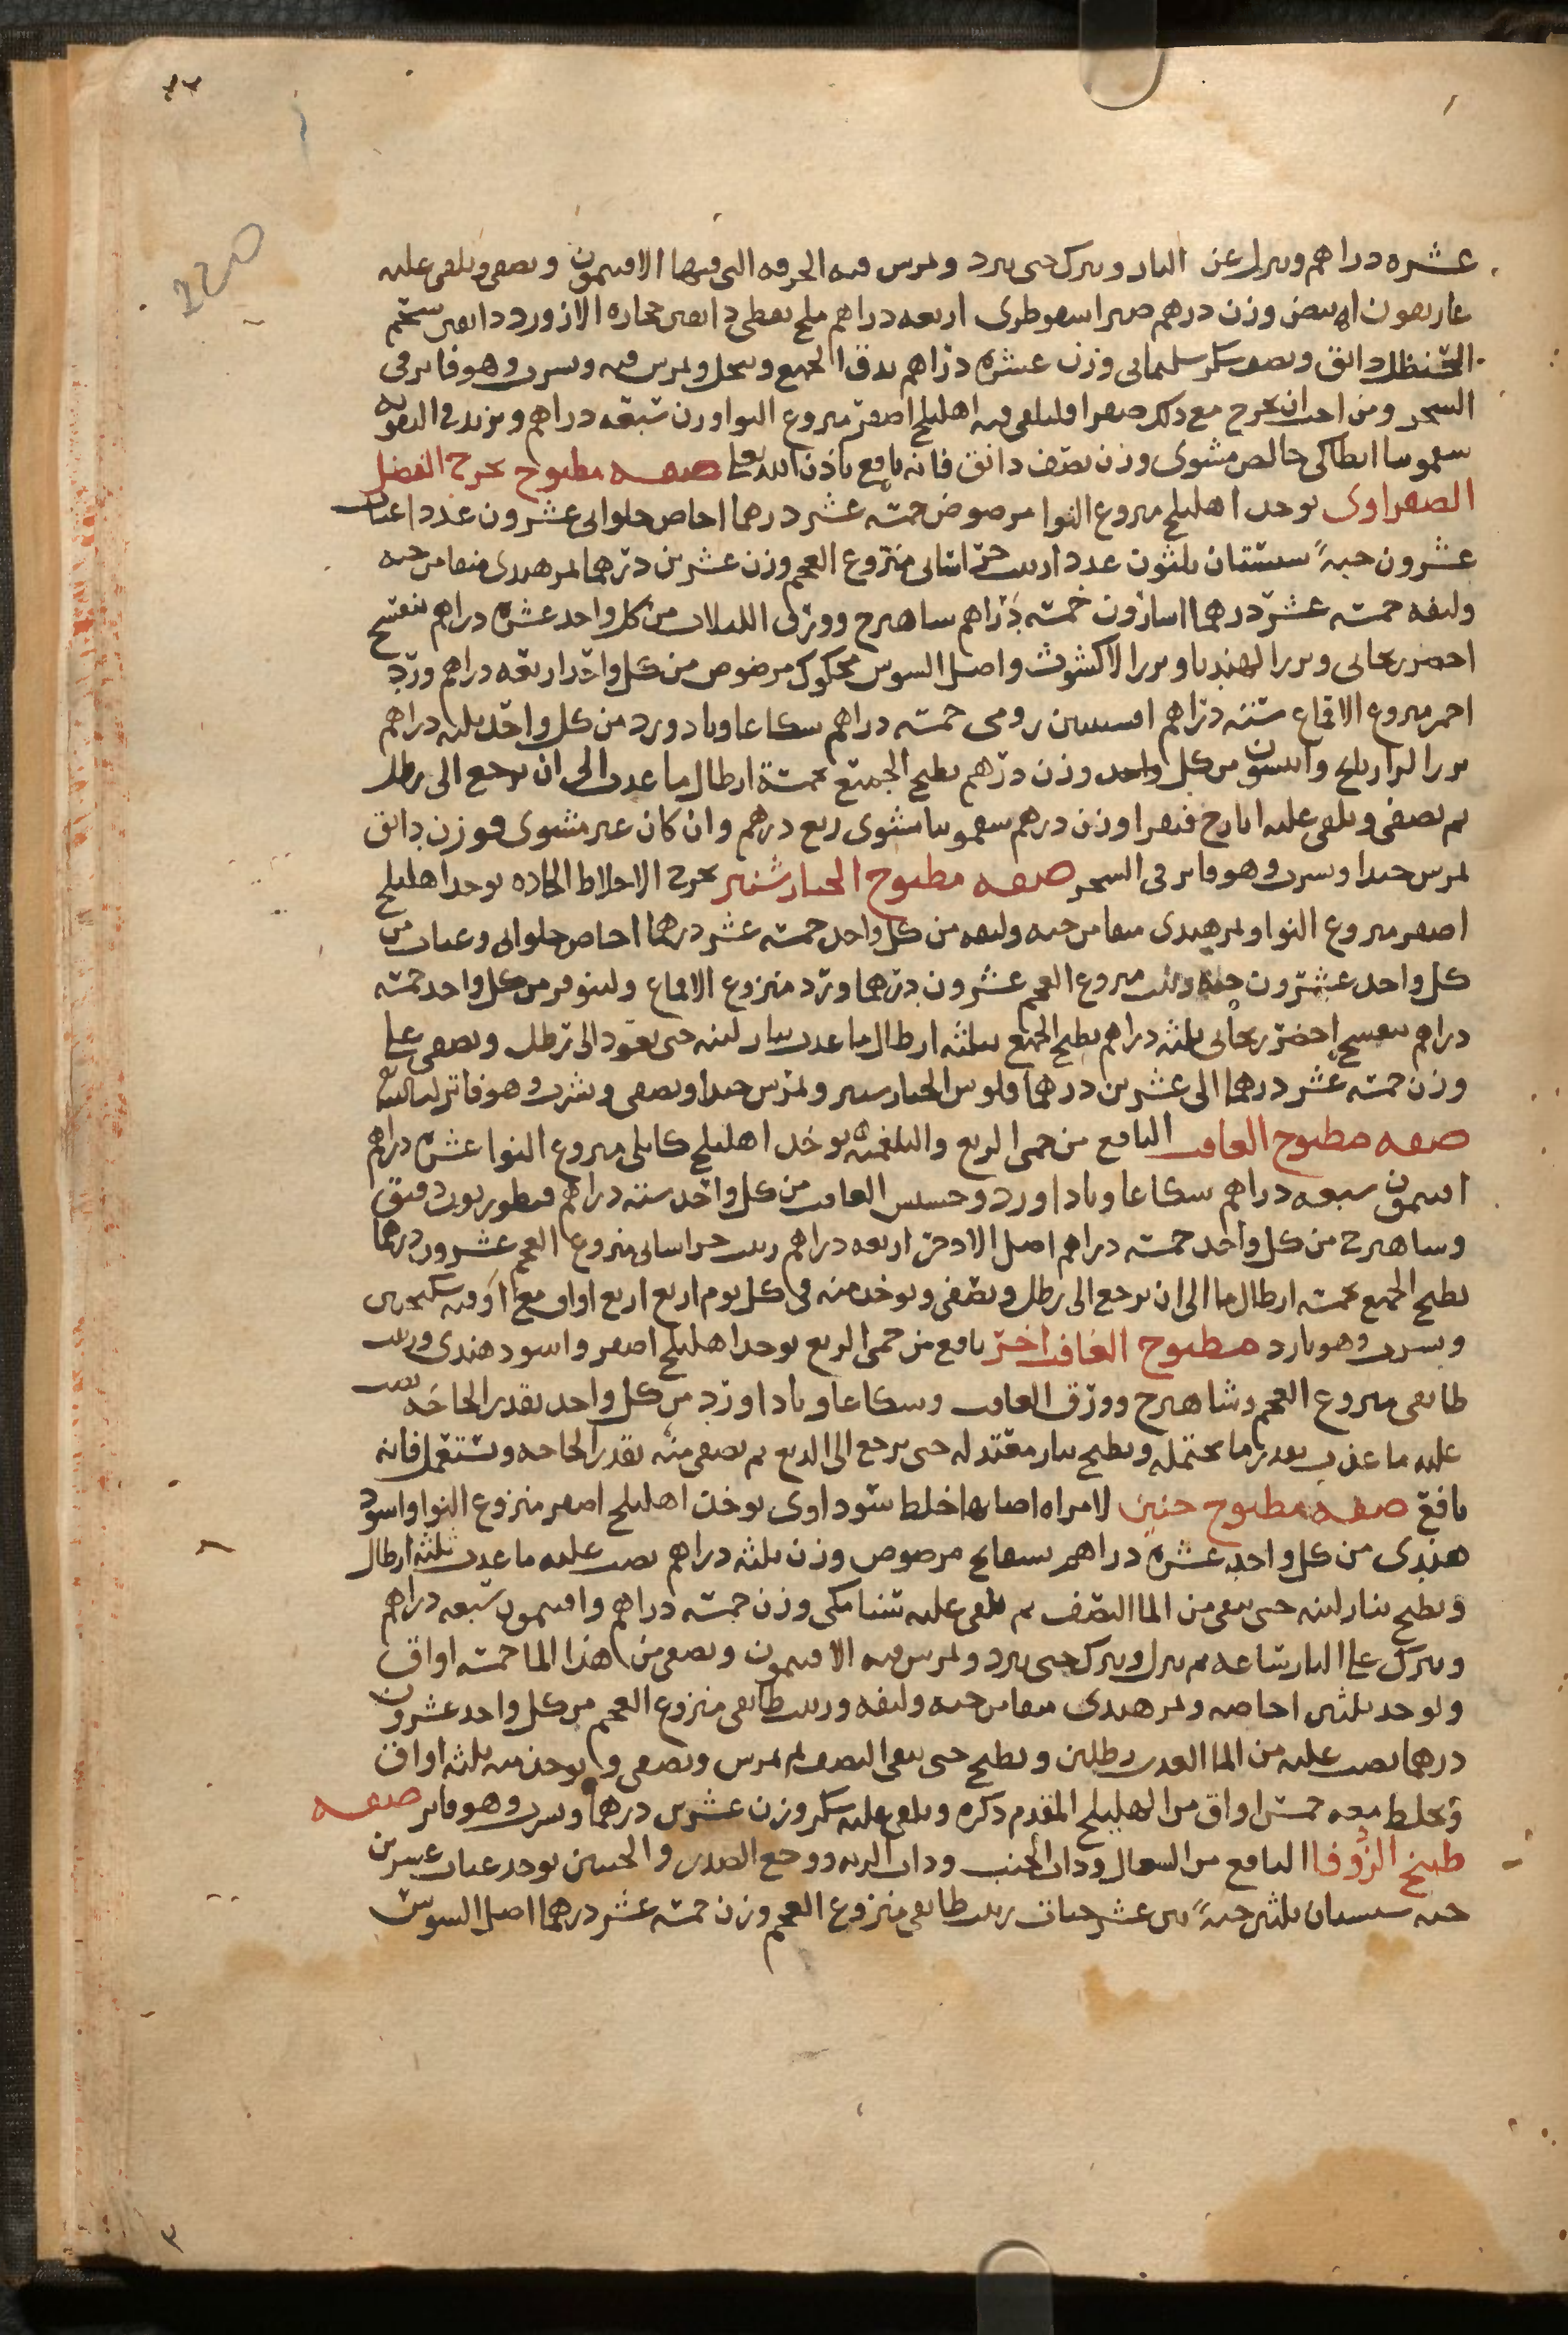 عشره دراهم وينزل عن النار ويترك حتى يبرد ويمرس فيه الخرقه التى فيها الافتيمون ويصفى ويلقى عليه
غاريقون ابيض وزن درهم صبر اسقوطرى اربعه دراهم ملح نفطى دانقين حجاره الازورد دانقين شحم
الحنظل دانق ونصف سكر سليمانى وزن عشره دراهم يدق الجميع وينخل ويمرس فيه ويشرب وهو فاتر فى
السحر ومن احب ان يخرج مع ذلك صفرا فليلقى فيه اهليلج اصفر منزوع النوا وزن سبعه دراهم ويزيد فى التقويه
سقمونيا انطاكى خالص مشوى وزن نصف دانق فانه نافع باذن الله تعالى صفه مطبوخ يخرج الفضل
الصفراوى يوخذ اهليلج منزوع النوا مرضوض خمسه عشر درهما اجاص حلوانى عشرون عددا عناب
عشرون حبةً سبستان ثلثون عددا زبيب خراسانى منزوع العجم وزن عشرين درهما تمر هندى منقا من حبه
وليفه خمسه عشر درهما اسارون خمسه دراهم ساهترج وورق اللبلاب من كل واحد عشره دراهم بنفسج
اخضر ريحانى وبزر الهندبا وبزر الاكشوث واصل السوس محكوك مرضوض من كل واحد اربعه دراهم ورد
احمر منزوع الاقماع سته دراهم افسنتين رومى خمسه دراهم شكاعا وبادورد من كل واحد ثلثه دراهم
بزر الرازيانج وانيسون من كل واحد وزن درهم يطبخ الجميع بخمسة ارطال ما عذب الى ان يرجع الى رطل
ثم يصفى ويلقى عليه ايارج فيقرا وزن درهم سقمونيا مشوى ربع درهم وان كان غير مشوى فوزن دانق
يمرس جيدا ويشرب وهو فاتر فى السحر صفه مطبوخ الخيار شنبر يخرج الاخلاط الحاده يوخذ اهليلج
اصفر منزوع النوا وتمر هندى منقا من حبه وليفه من كل واحد خمسه عشر درهما اجاص حلوانى وعناب من
كل واحد عشرون حبه زبيب منزوع العجم عشرون درهما ورد منزوع الاقماع ولينوفر من كل واحد خمسه
دراهم بنفسج اخضر ريحانى ثلثه دراهم يطبخ الجميع بثلثه ارطال ما عذب بنار لينه حتى يعود الى رطل ويصفى على
وزن خمسه عشر درهما الى عشرين درهما فلوس الخيار شنبر ويمرس جيدا ويصفى ويشرب وهو فاتر
صفه مطبوخ الغافت النافع من حمى الربع والبلغميه يوخذ اهليلج كابلى منزوع النوا عشره دراهم
افتيمون سبعه دراهم شكاعا وباداورد وحشيش الغافت من كل واحد سته دراهم قنطوريون دقيق
وساهترج من كل واحد خمسه دراهم اصل الادخر اربعه دراهم زبيب خراسانى منزوع العجم عشرون درهما
يطبخ الجميع بخمسه ارطال ما الى ان يرجع الى رطل ويصفى ويوخذ منه فى كل يوم اربع اربع اواق مع اوقيه سكنجبين
ويشرب وهو بارد مطبوخ الغافت اخر نافع من حمى الربع يوخذ اهليلج اصفر واسود هندى وزبيب
طايفى منزوع العجم وشاهترج وورق الغافت وشكاعا وباداورد من كل واحد بقدر الحاجه يصب
عليه ما عذب بقدر ما يحتمله ويطبخ بنار معتدله حتى يرجع الى الربع ثم يصفى منه بقدر الحاجه ويستعمل فانه
نافع صفه مطبوخ حنين لامراه اصابها خلط سوداوى يوخذ اهليلج اصفر منزوع النوا واسود
هندى من كل واحد عشره دراهم بسفايج مرضوض وزن ثلثه دراهم يصب عليه ما عذب ثلثه ارطال
ويطبخ بنار لينه حتى يبقى من الما النصف ثم يلقى عليه سنا مكى وزن خمسه دراهم وافتيمون سبعه دراهم
ويترك على النار ساعه ثم ينزل ويترك حتى يبرد ويمرس فيه الافتيمون ويصفى من هذا الما خمسه اواق
ويوخذ ثلثين اجاصه وتمر هندى منقا من حبه وليفه وزبيب طايفى منزوع العجم من كل واحد عشرون
درهما يصب عليه من الما العذب رطلين ويطبخ حتى يبقى النصف ثم يمرس ويصفى ويوخذ منه ثلثه اواق
ويخلط معه خمس اواق من الهليلج المقدم ذكره ويلقى عليه سكر وزن عشرين درهما ويشرب وهو فاتر صفه
طبيخ الزُوفا النافع من السعال وذات الجنب وذات الريه ووجع الصدر والجنبين يوخذ عناب عشرين
حبه سبستان ثلثين حبةً تين عشر حبات زبيب طايفى منزوع العجم وزن خمسه عشر درهما اصل السوس